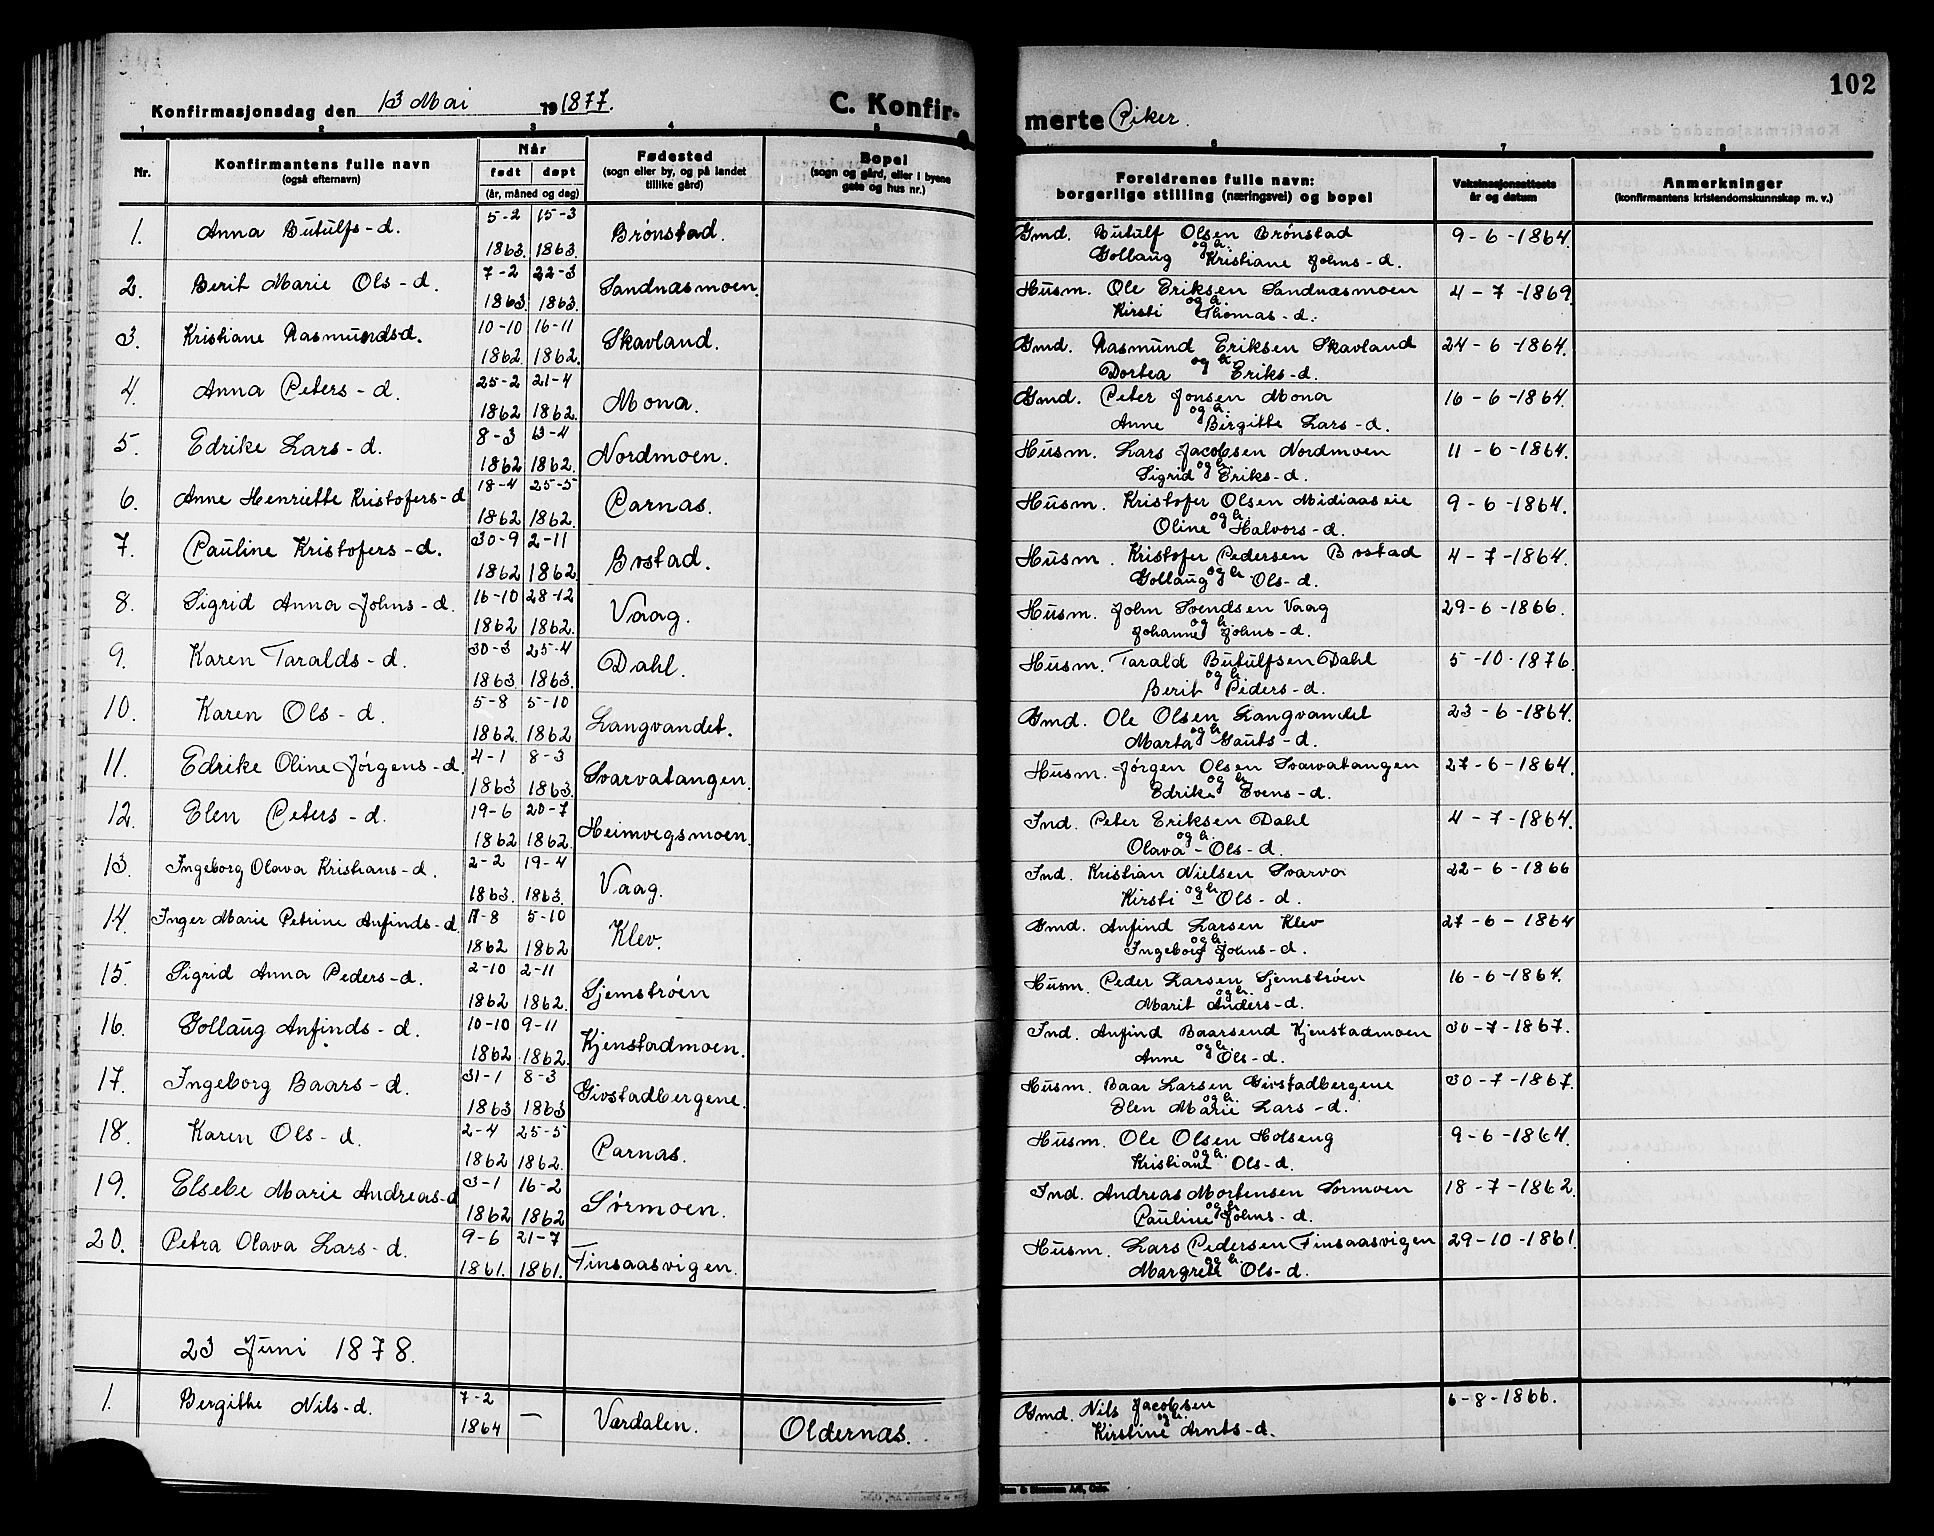 102
Konfirmasjonsdag den 13 Mai 19 1877. C. Konfir- merte Piker.
1 2 3 4 5 6 7 8
Nr. Konfirmantens fulle navn (også efternavn) Når født døpt (år, måned og dag) Fødested (sogn eller by, og på landet tillike gård) Bopel (sogn og gård, eller i byene gate og hus nr.) Foreldrenes fulle navn: borgerlige stilling (næringsvei) og bopel Vaksinasjonsattests år og datum Anmerkninger (konfirmantens kristendomskunnskap m. v.)
1. Anna Butulfs-d. 5-2 1863. 15-3 1863. Brønstad. Gmd. Butulf Olsen Brønstad og h. Gollaug Kristiane Johns-d. 9-6-1864.
2. Berit Marie Ols-d. 7-2 1863. 22-3 1863. Sandnæsmoen. Husm. Ole Eriksen Sandnæsmoen og h. Kirsti Thomas-d. 4-7-1869
3. Kristiane Rasmundsd. 10-10 1862. 16-11 1862. Skavland. Gmd. Rasmund Eriksen Skavland og h. Dortea Eriks-d. 24-6-1864.
4. Anna Peters-d. 25-2 1862 21-4 1862. Mona. Gmd. Peter Jonsen Mona og h. Anne Birgitte Lars-d. 16-6-1864.
5. Edrike Lars-d. 8-3 1862 13-4 1862. Nordmoen. Husm. Lars Jacobsen Nordmoen og h. Sigrid Eriks-d. 11-6-1864.
6. Anne Henriette Kristofers-d 18-4 1862 25-5 1862. Parnas. Husm. Kristofer Olsen Midiaaseie og h. Oline Halvors-d. 9-6-1864.
7. Pauline Kristofers-d. 30-9 1862 2-11 1862 Bostad. Husm. Kristofer Pedersen Bostad og h. Gollaug Ols-d. 4-7-1864.
8. Sigrid Anna Johns-d. 16-10 1862 28-12 1862. Vaag. Husm. John Svendsen Vaag og h. Johanne Johns-d. 29-6-1866.
9. Karen Taralds-d. 30-3 1863. 25-4 1863. Dahl. Husm. Tarald Butulfsen Dahl og h. Berit Peders-d. 5-10-1876.
10. Karen Ols-d. 5-8 1862. 5-10 1862 Langvandet. Gmd. Ole Olsen Langvandet og h. Marta Gauts-d. 23-6-1864.
11. Edrike Oline Jørgens-d. 4-1 1863 8-3 1863. Svarvatangen. Husm. Jørgen Olsen Svarvatangen og h. Edrike Evens-d. 27-6-1864.
12. Elen Peters-d. 19-6 1862 20-7 1862 Heimvegsmoen. Ind. Peter Eriksen Dahl og h. Olava Ols-d. 4-7-1864.
13. Ingeborg Olava Kristians-d. 2-2 1863. 19-4 1863. Vaag. Ind. Kristian Nielsen Svarva og h. Kirsti Ols-d. 22-6-1866
14. Inger Marie Petrine Anfinds-d. 17-8 1862 5-10 1862 Klev. Gmd. Anfind Larsen Klev og h. Ingeborg Johns-d. 27-6-1864
15. Sigrid Anna Peders-d. 2-10 1862 2-11 1862. Sjemstrøen Husm. Peder Larsen Sjemstrøen og h. Marit Anders-d. 16-6-1864.
16. Gollaug Anfinds-d. 10-10 1862 9-11 1862. Kjenstadmoen. Ind. Anfind Baarsend Kjenstadmoen og h. Anne Ols-d. 30-7-1867.
17. Ingeborg Baars-d. 31-1 1863 8-3 1863 Givstadbergene. Husm. Baar Larsen Givstadbergene og h. Elen Marie Lars-d. 30-7-1867.
18. Karen Ols-d. 2-4 1862 25-5 1862. Parnas. Husm. Ole Olsen Holseng og h. Kristiane Ols-d. 9-6-1864.
19. Elsebe Marie Andreas-d 3-1 1862 16-2 1862 Sørmoen. Ind. Andreas Mortensen Sørmoen og h. Pauline Johns-d. 18-7-1862.
20. Petra Olava Lars-d. 9-6 1861. 21-7 1861. Finsaasvigen. Husm. Lars Pedersen Finsaasvigen og h. Margrete Ols-d. 29-10-1861.
23 Juni 1878.
1. Bergitte Nils-d. 7-2 1864 — Værdalen. Oldernæs. Gmd. Nils Jacobsen og h. Kirstine Arnts-d. 6-8-1866.